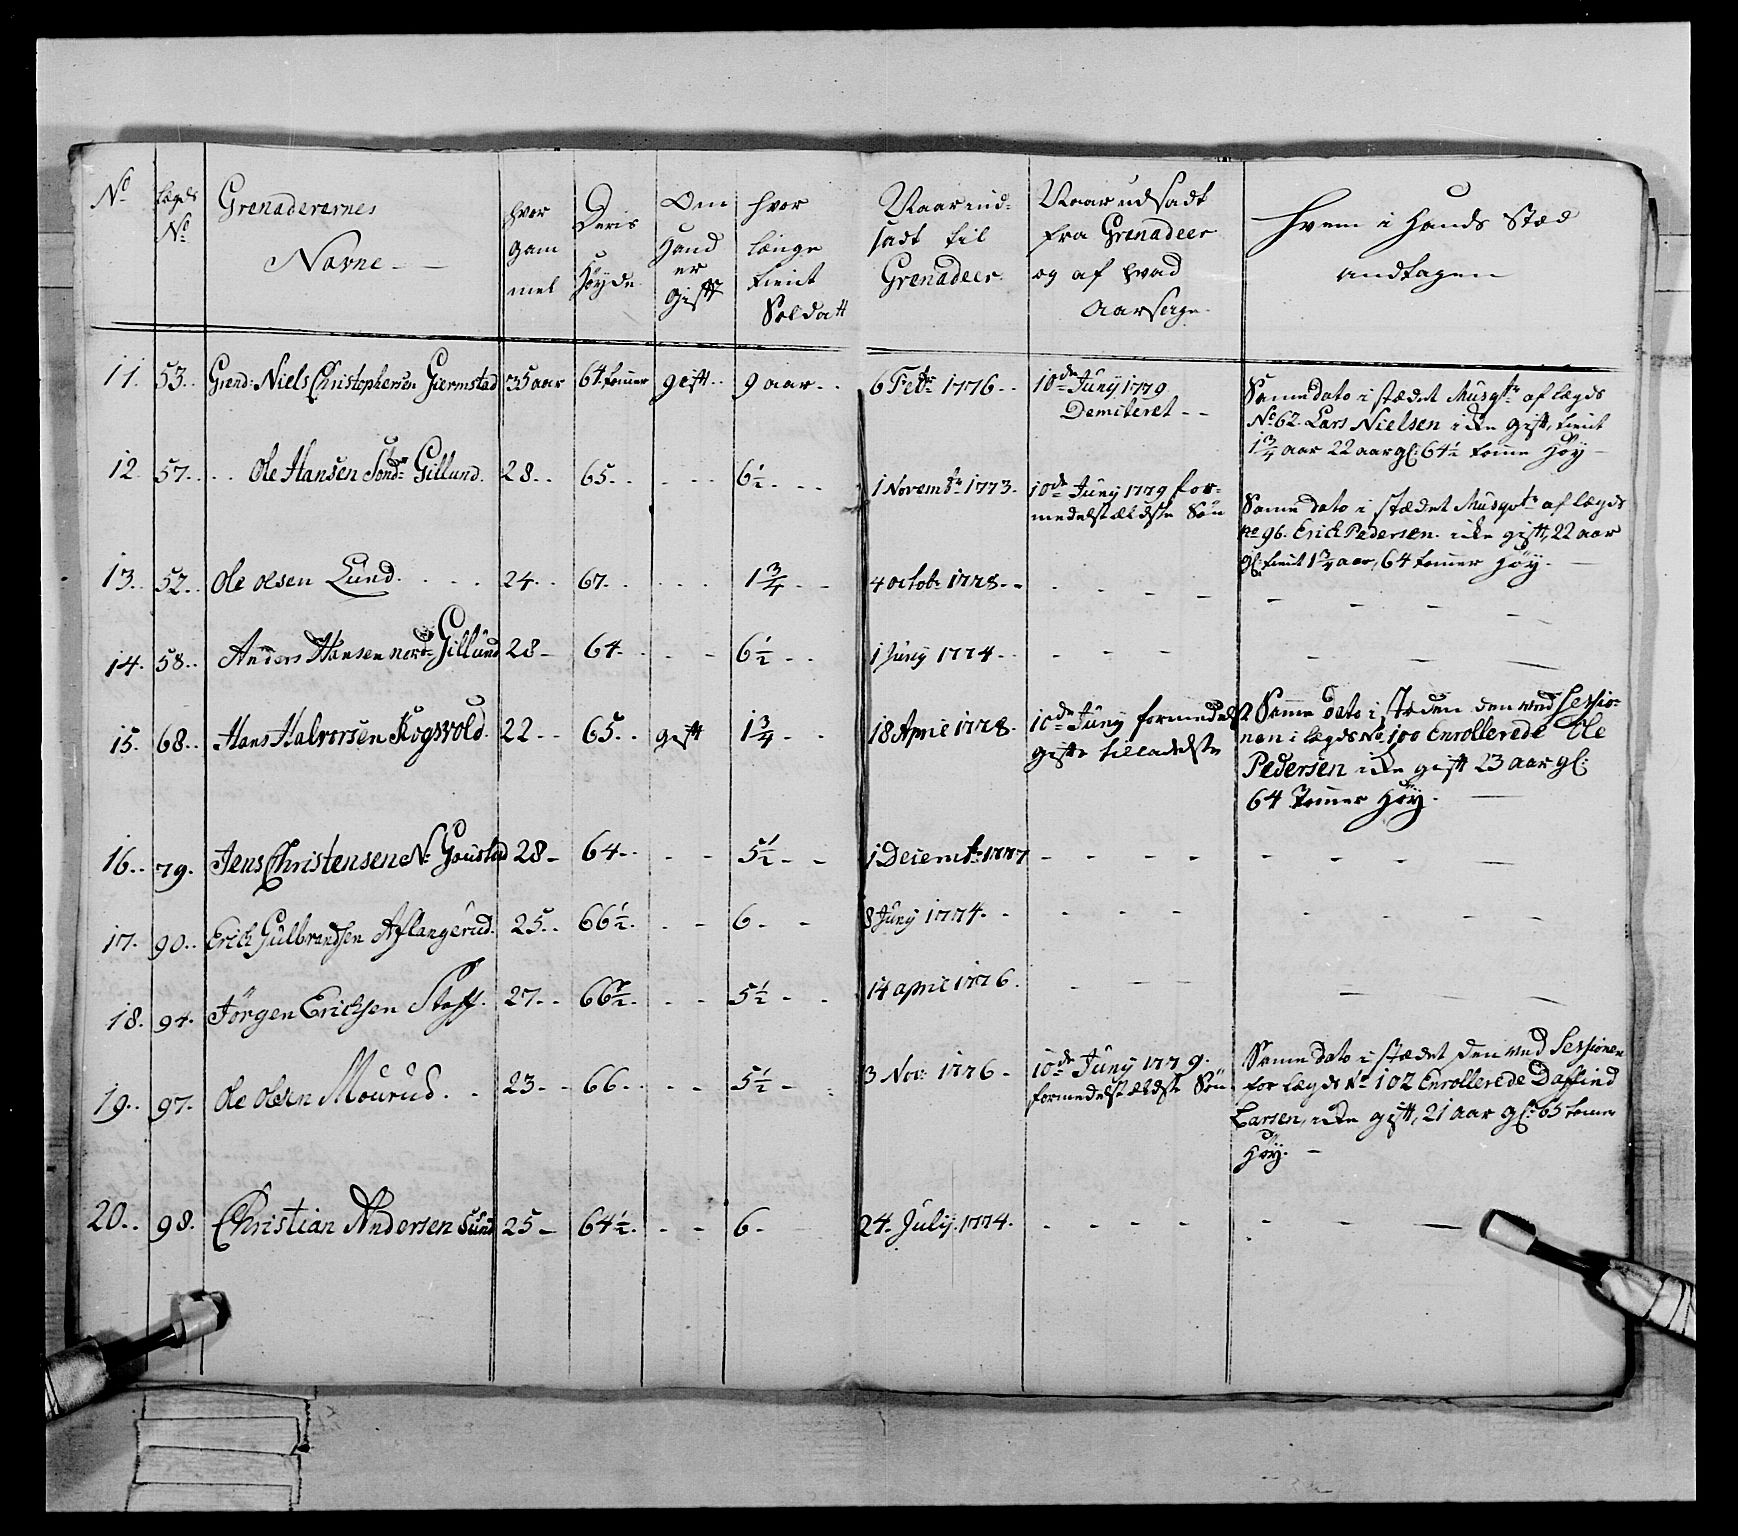 No Lægds No Grenaderernes Navne hvor gammel Deris Høyde Om Hand er gift hvor længe tient Soldatt Naar udsadt til Grenadeer Naar udsadt fra Grenadeer og af hvad Aarsage hvem i Hands Stæd andtagen
11. 53.. Grend: Niels Christophersen Giermstad 35 aar 64 tomer gift.. 9 aar.. 6 Febr 1776.. 10de Junÿ 1779 Demiteret - -
Same dato i stædet Musqtr af lægds
No 62. Lars Nielsen icke gift, tient
1 3/4 aar 22 aar gl: 64 1/2 tome Høy
12. 57.. .. Ole Hansen Sondr Gillund. 28.. 65.. 6 1/2.. 1 Novembr 1773. 10de Junÿ 1779 formedelst ældste Søn
Same dato i stædet Musqvtr af lægds
no 96. Erick Pedersen. icke gift, 22 aar
gl: tient 1 3/4 aar, 64 tomer Høy.
13.. 52.. Ole olsen Lund. 24.. 67.. 1 3/4 - - 4 octobr 1778 - -
14. 58.. Anders Hansen nordr Gillund 28 - 64. 6 1/2 - - 1 Junÿ 1774 - -
15. 68.. Hans Halvorsen Kogsvold. 22 - - 65.. gift 1 3/4 - - 18 April 1778. 10de Junÿ formedelst gifte tilladelste
Same Dato i stæden den ved Sessionen i lægds No 100 Enrollerede Ole
Pedersen icke gift 23 aar gl:
64 Tomer Høy.
16.. 79. Jens Christensen N: Goustad 28 - 64 - - 5 1/2 - - 1 Decembr 1777
17. 90.. Erich Gulbrandsen Aflangerud. 25.. 66 1/2. 6 - - 8 Junÿ 1774. -
18. 94. Jörgen Erichsen 27.. 66 1/2. 5 1/2 - - 14 april 1776.
19.. 97. Ole olsen Mourud. 23 - - 66.. 5 1/2 - 3 Nov: 1776 - 10de Junÿ 1779. formedelst ældste Søn
Same dato i stædet den ved Sessionen
for lægds No 102 Enrollerede Daffind
Larsen, icke gift, 21 aar gl: 65 tomer
Høy.
20.. 98. Christian Andersen Sund 25 - 64 1/2. 6 - 24. Julÿ 1774.